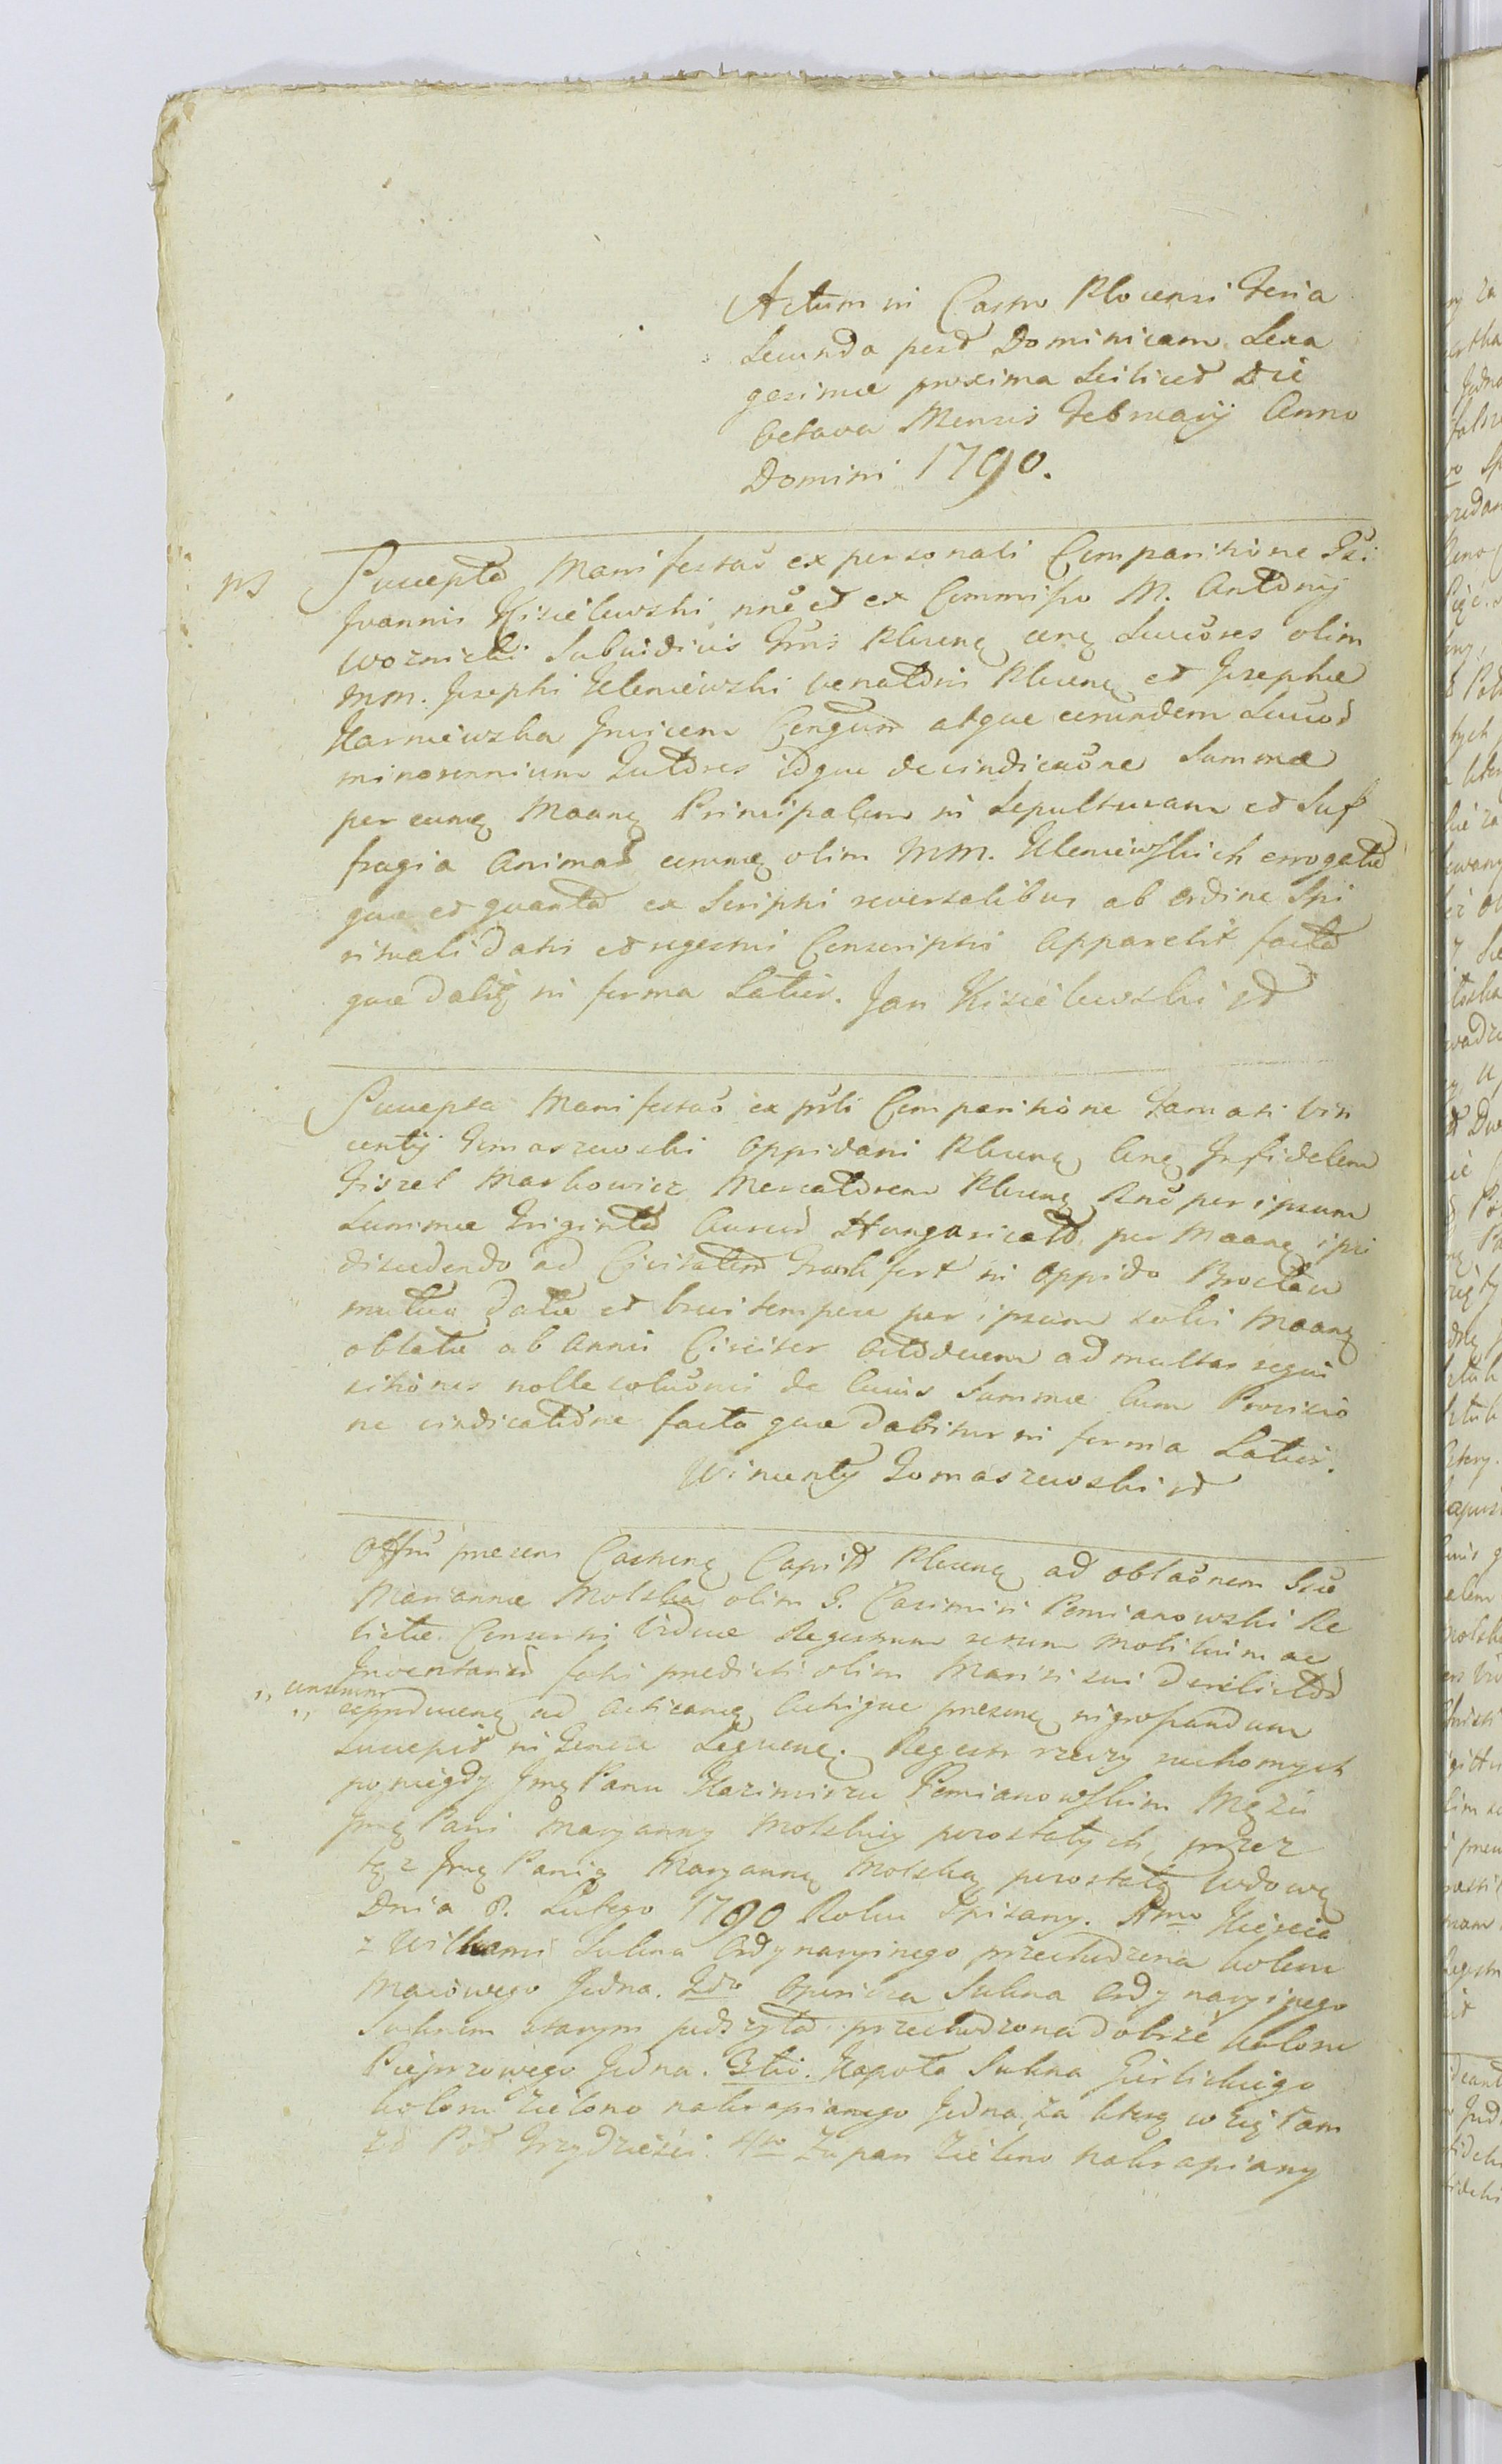 Actum in Castro Plocensi Feria
Secunda post Dominicam Sexa
gesimae proxima Scilicet Die
Octava Mensis Februarij Anno
Domini 1790.
Suscepta Manifestaō ex personali Comparitione
Joannis Kisielewski nnē et ex Commisso M. Antonij
Woznicki Subiudicis Plocens cons Succōres olim
MM. Josephi Ueleniewski Venatoris Plocens et Josephae
Karniewska Invicem Conjugum atque eorundem Succod
minorennium Tutores idque de vindicaōne Summae
per eund Maanę Principalem in Sepulturam et Suf
fragia Animad eorund olim MM. Uleniewskich errogatae
quae et quanta ex Scripti reversalibus ab Ordine Spi
rituali datis et regestri Conscriptis Apparebit facta
quae dabit in forma Latior. Jan Kisielewski
Suscepta Manifestaō ex prsli Comparitione Famati Vin
centij Tomaszewski Oppidani Plocens Cons Infidelem
Fiszel Markowicz Mercatorem Plocens Rnē per ipsum
Summae Triginta Aureod Hungaricald per Maanę ipsi
discedendo ad Civitatem Frankfort in Oppido
mutuo datae et brevi tempore per ipsum solvi Maanę
oblatae ab Annis Circiter Octodecem ad multas requi
sitiones nolle soluōnis de cuius Summae Cum Provisio
ne vindicatione facta quae dabitur in forma Latior.
Wincenty Tomaszewski
Offm praesens Castrens Capitt Plocens ad oblaōnem
Mariannae Molska olim G. Casimiri Pomianowski Re
lictae Consorti Viduae Regestrum rerum Mobilium ac
Inventarid fati praedicti olim Mariti sui derelictod
reproducens ad Acticand Actique praesens ingrossandum
suscepit in Genere Sequens. Regestr rzeczy ruchomych
po niegdy Jmę Panu Kazimirzu Pomianowskim Mężu
Jmę Pani Maryanny Molskiey pozostałych, przez
tęż Jmę Panią Maryannę Molską pozostałą Wdowę
Dnia 8. Lutego 1790 Roku Spisany. 1mo Kiereia
z Wilkami Sukna Ordynaryinego przechodzona koloru
Makowego Jedna. 2do Opończa Sukna Ordynaryinego
Suknem starym podszyta przechodzona dobrze koloru
Pieprzowego Jedna. 3tio. Kapota Sukna
koloru zielono nakrapianego Jedna, za którą wziętam
zł Pol Trzydzieści. 4to Żupan Zielono nakrapiany